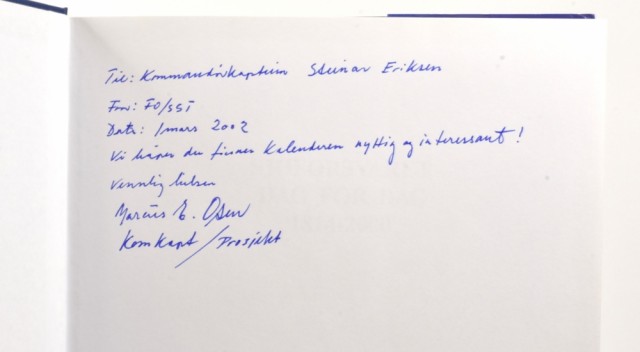 Til: Kommandørkaptein Steinar Eriksen
Fra: FO/SST
Dato: 1 mars 2002
Vi håper du finner Kalenderen nyttig og interessant!
Vennlig hilsen
Marcus E. Osen
KomKapt/Prosjekt